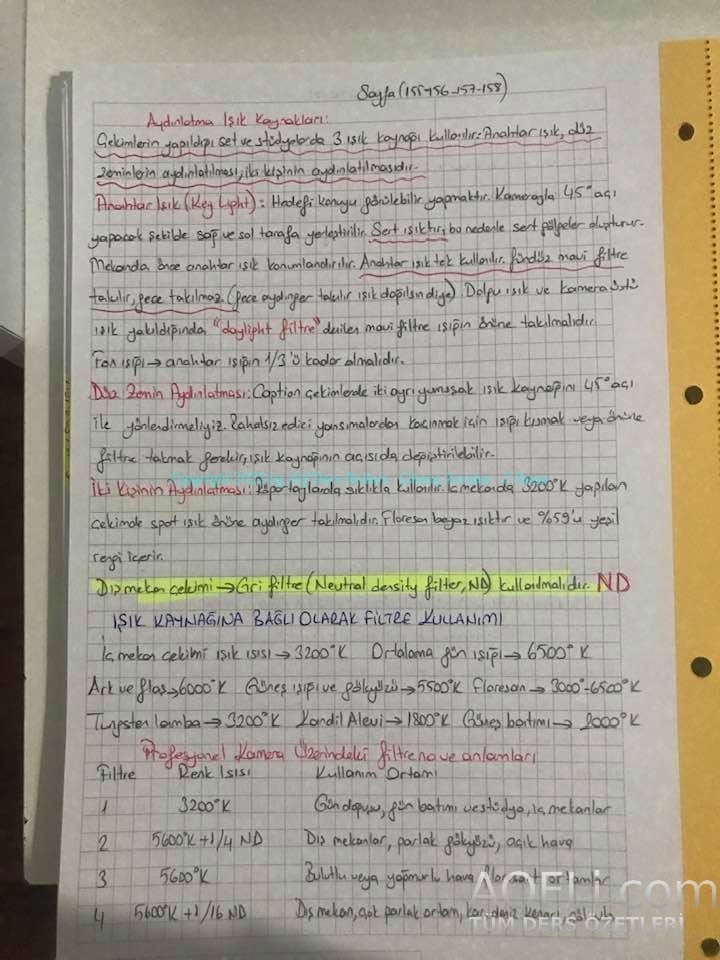 Sayfa (155-156-157-158)
Aydınlatma Işık Kaynakları:
Çekimlerin yapıldığı set ve stüdyolarda 3 ışık kaynağı kullanılır: Anahtar ışık, düz
zeminlerin aydınlatılması, iki kişinin aydınlatılmasıdır.
Anahtar Işık (Key Light): Hedefi konuyu görülebilir yapmaktır. Kamerayla 45° açı
yapacak şekilde sağ ve sol tarafa yerleştirilir. Sert ışıktır, bu nedenle sert gölgeler oluşturur.
Mekanda önce anahtar ışık konumlandırılır. Anahtar ışık tek kullanılır. Gündüz mavi filtre
takılır, gece takılmaz. (gece aydınger takılır ışık dağılsın diye). Dolgu ışık ve kamera üstü
ışık yakıldığında "daylight filtre" denilen mavi filtre ışığın önüne takılmalıdır.
Fon ışığı → anahtar ışığın 1/3'ü kadar olmalıdır.
Düz Zemin Aydınlatması: Caption çekimlerde iki ayrı yumuşak ışık kaynağını 45° açı
ile yönlendirmeliyiz. Rahatsız edici yansımalardan kaçınmak için ışığı kısmak veya önüne
filtre takmak gerekir, ışık kaynağının açısı da değiştirilebilir.
İki Kişinin Aydınlatması: Röportajlarda sıklıkla kullanılır. İç mekanda 3200°K yapılan
çekimde spot ışık önüne aydınger takılmalıdır. Floresan beyaz ışıktır ve %59'u yeşil
rengi içerir.
Dış mekan çekimi → Gri filtre (Neutral density filter, ND) kullanılmalıdır. ND
IŞIK KAYNAĞINA BAĞLI OLARAK FİLTRE KULLANIMI
İç mekan çekimi ışık ısısı → 3200°K Ortalama gün ışığı → 6500°K
Ark ve flaş → 6000°K Güneş ışığı ve gökyüzü → 5500°K Floresan → 3000°-6500°K
Tungsten lamba → 3200°K Kandil Alevi → 1800°K Güneş batımı → 2000°K
Profesyonel Kamera Üzerindeki filtre no ve anlamları
Filtre Renk Isısı Kullanım Ortamı
1 3200°K Gün doğuşu, gün batımı ve stüdyo, iç mekanlar
2 5600°K + 1/4 ND Dış mekanlar, parlak gökyüzü, açık hava
3 5600°K Bulutlu veya yağmurlu hava ortamlar
4 5600°K + 1/16 ND Dış mekan, çok parlak ortam, kar, deniz kenarı,
AOFLi.com
TÜM DERS ÖZETLERİ